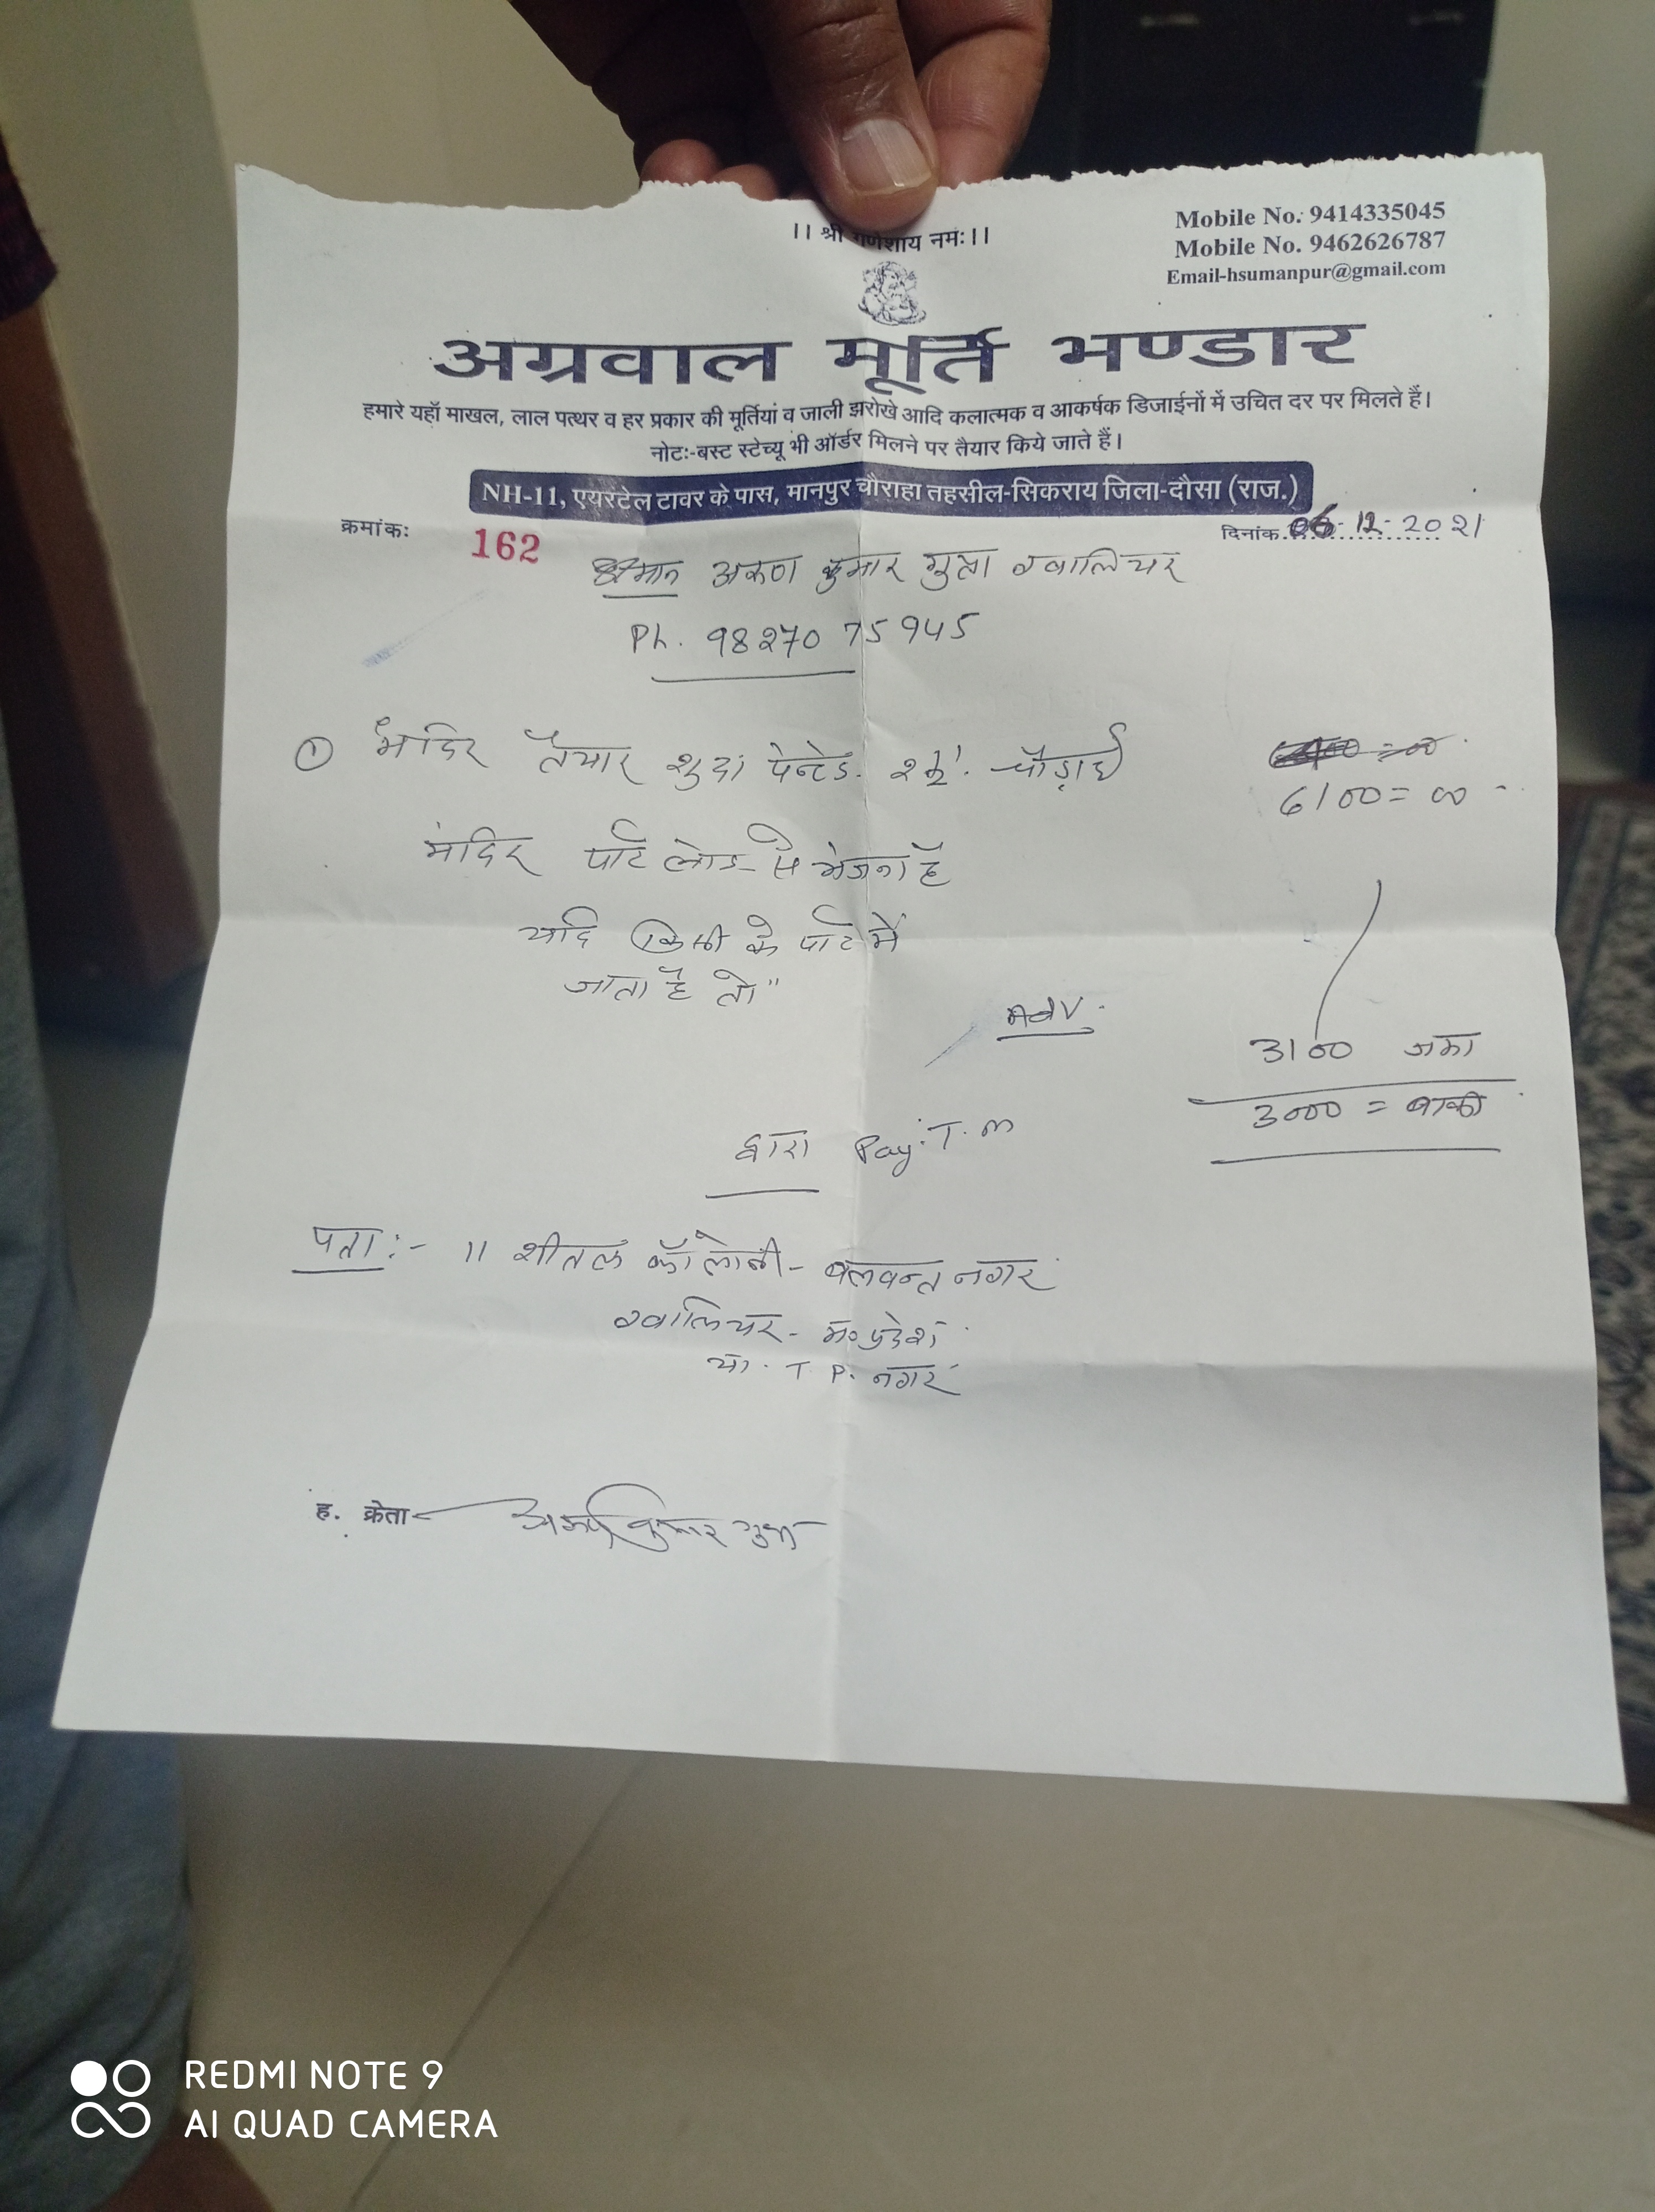 ।। श्री गणेशाय नमः।।
Mobile No. 9414335045
Mobile No. 9462626787
Email-hsumanpur@gmail.com
अग्रवाल मूर्ति भण्डार
हमारे यहाँ माखल, लाल पत्थर व हर प्रकार की मूर्तियां व जाली झरोखे आदि कलात्मक व आकर्षक डिजाईनों में उचित दर पर मिलते हैं।
नोटः-बस्ट स्टेच्यू भी ऑर्डर मिलने पर तैयार किये जाते हैं।
NH-11, एयरटेल टावर के पास, मानपुर चौराहा तहसील-सिकराय जिला-दौसा (राज.)
क्रमांकः 162 दिनांक 06-12-2021
श्रीमान अरूण कुमार गुप्ता ग्वालियर
Ph. 98270 75945
① मंदिर तैयार शुदा पेन्टेड. चौड़ाई 6100=00
मंदिर पार्ट लोड से भेजना है
यदि किसी के पार्ट में
जाता है तो"
Adv. 3100 जमा
3000 = बाकी
द्वारा Pay.T.m
पता:- 11 शीतल कॉलोनी- बलवन्त नगर
ग्वालियर- म०प्रदेश
या. T.P. नगर
ह. क्रेता अरूण कुमार गुप्ता
REDMI NOTE 9
AI QUAD CAMERA